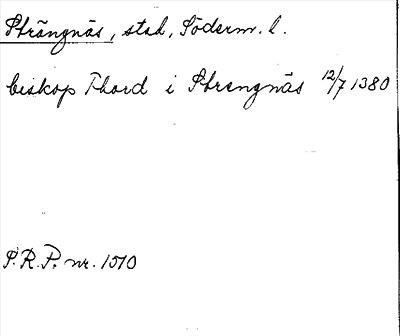 Strängnäs, stad, Söderm. l.
biskop Thord i Strengnäs 12/7 1380
S.R.P. nr. 1510